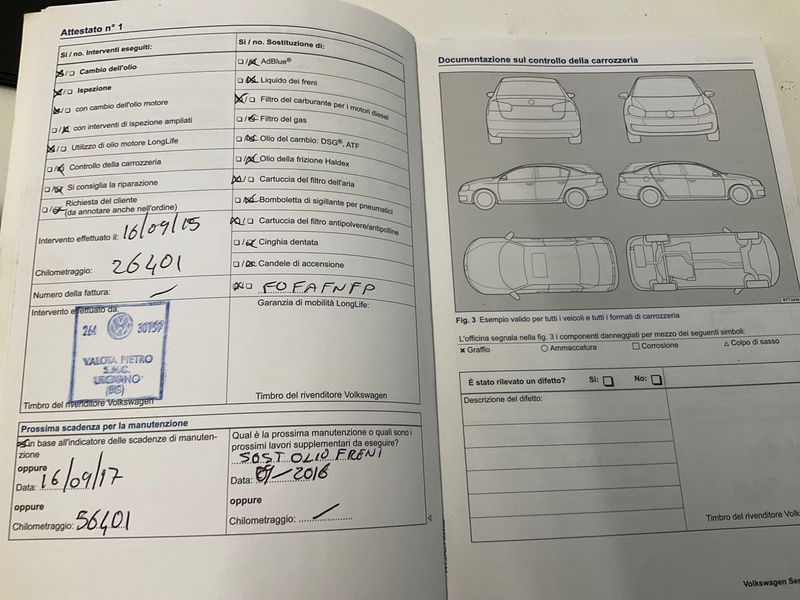 Attestato n° 1
Si / no. Interventi eseguiti:
☒/☐ Cambio dell'olio
☒/☐ Ispezione
☒/☐ con cambio dell'olio motore
☐/☒ con interventi di ispezione ampliati
☒/☐ Utilizzo di olio motore LongLife
☐/☒ Controllo della carrozzeria
☐/☒ Si consiglia la riparazione
☐/☒ Richiesta del cliente
(da annotare anche nell'ordine)
Intervento effettuato il: 16/09/15
Chilometraggio: 26401
Numero della fattura: —
Intervento effettuato da:
264 30159
VALOTA PIETRO
S.N.C.
URGNANO
(BG)
Timbro del rivenditore Volkswagen
Si / no. Sostituzione di:
☐/☒ AdBlue®
☐/☒ Liquido dei freni
☒/☐ Filtro del carburante per i motori diesel
☐/☒ Filtro del gas
☐/☒ Olio del cambio: DSG®, ATF
☐/☒ Olio della frizione Haldex
☒/☐ Cartuccia del filtro dell'aria
☐/☒ Bomboletta di sigillante per pneumatici
☒/☐ Cartuccia del filtro antipolvere/antipolline
☐/☒ Cinghia dentata
☐/☒ Candele di accensione
☒/☐ FOFAFNFP
Garanzia di mobilità LongLife:
Timbro del rivenditore Volkswagen
Prossima scadenza per la manutenzione
☒ in base all'indicatore delle scadenze di manuten-
zione
oppure
Data: 16/09/17
oppure
Chilometraggio: 56401
Qual è la prossima manutenzione o quali sono i
prossimi lavori supplementari da eseguire?
SOST OLIO FRENI
Data: 09/2018
oppure
Chilometraggio: —
Documentazione sul controllo della carrozzeria
Fig. 3 Esempio valido per tutti i veicoli e tutti i formati di carrozzeria
L'officina segnala nella fig. 3 i componenti danneggiati per mezzo dei seguenti simboli:
× Graffio ○ Ammaccatura □ Corrosione △ Colpo di sasso
È stato rilevato un difetto? Si: ☐ No: ☐
Descrizione del difetto:
Timbro del rivenditore Volks
Volkswagen Ser